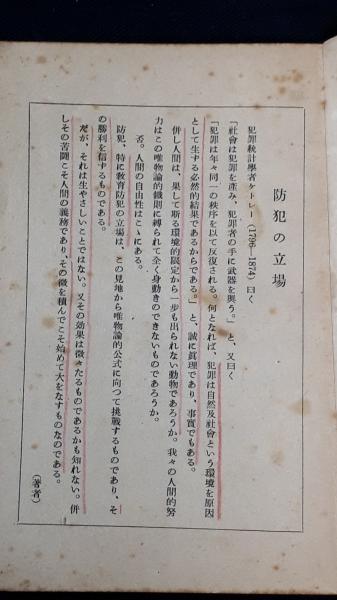 防犯の立場
犯罪統計學者ケトレー(1796—1874)曰く
「社會は犯罪を產み、犯罪者の手に武器を與う。」と、又曰く
「犯罪は年々同一の秩序を以て反復される。何となれば、犯罪は自然及社會という環境を原因
として生する必然的結果であるからである。」と、誠に眞理であり、事實でもある。
併し人間は、果して斯る環境的限定から一步も出られない動物であろうか。我々の人間的努
力はこの唯物論的鐵則に縛られて全く身動きのできないものであろうか。
否。人間の自由性はこゝにある。
防犯、特に敎育防犯の立場は、この見地から唯物論的公式に向つて挑戰するものであり、そ
の勝利を信ずるものである。
だが、それは生やさしいことではない。又その効果は微々たるものであるかも知れない。併
しその苦鬪こそ人間の義務であり、その微を積んでこそ始めて大をなすものなのである。
(著者)